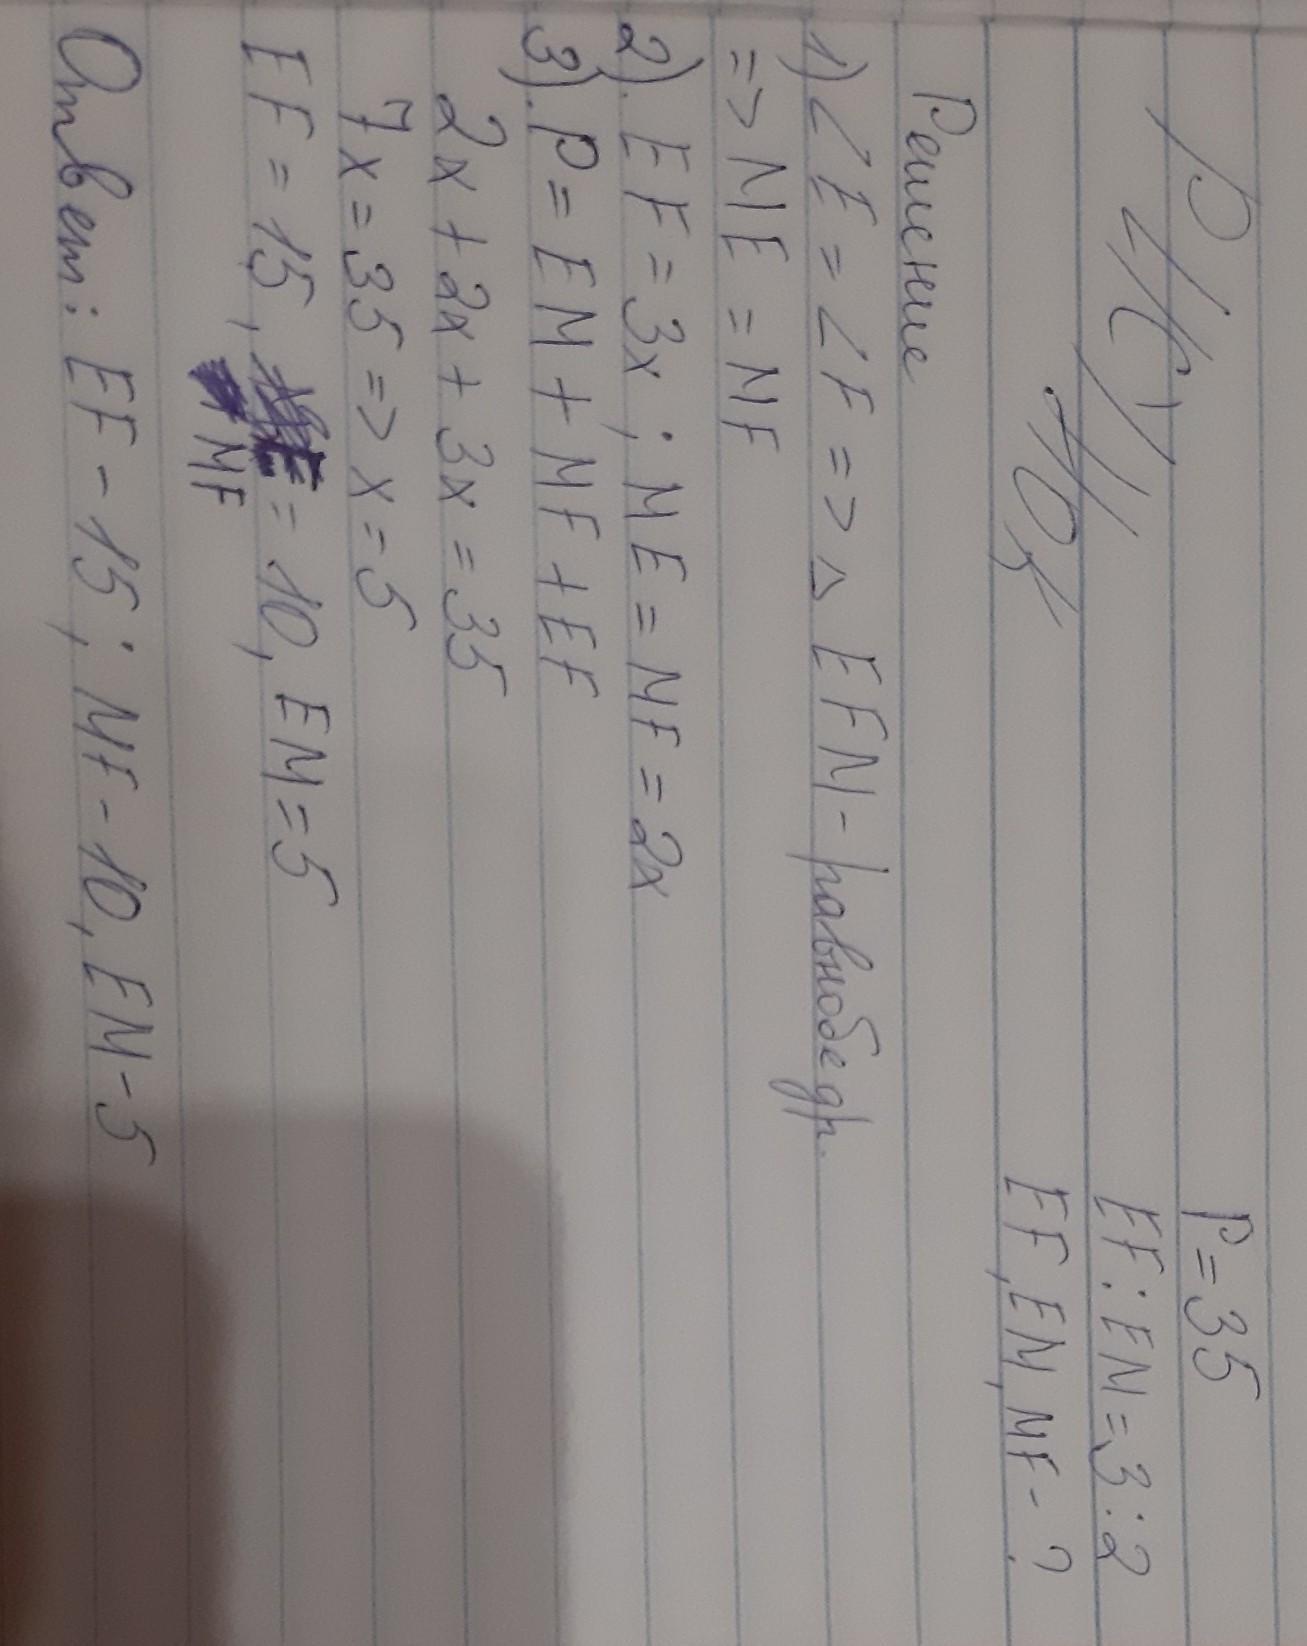 P = 35
EF : EM = 3 : 2
EF, EM, MF - ?
Решение
1) ∠E = ∠F => △ EFM - равнобедр.
=> ME = MF
2). EF = 3x ; ME = MF = 2x
3). P = EM + MF + EF
2x + 2x + 3x = 35
7x = 35 => x = 5
EF = 15, = 10, EM = 5
MF
Ответ: EF - 15 ; MF - 10, EM - 5